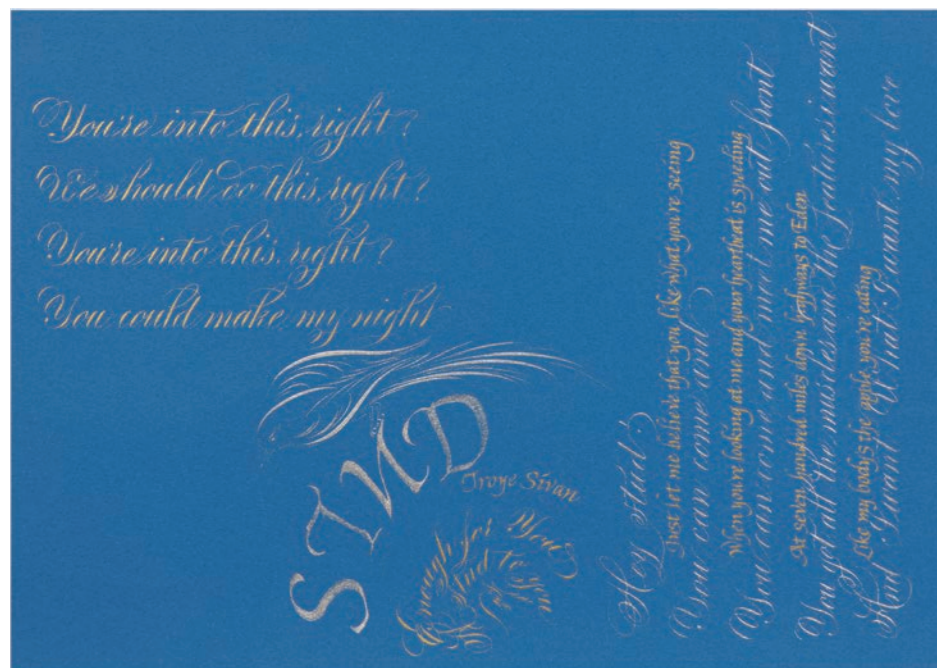 You're into this, right?
We should do this, right?
You're into this, right?
You could make my night
STUD
Troye Sivan
Enough for You
Stud to you
Hey stud!
Just let me believe that you like what you're seeing
You can come and
When you're looking at me and your heart that is speeding
You can come and meet me out front
At seven hundred miles down highways to Eden
You got all the muscles and the features i want
Like my body's the apple you're eating
And I want, What I want, my love